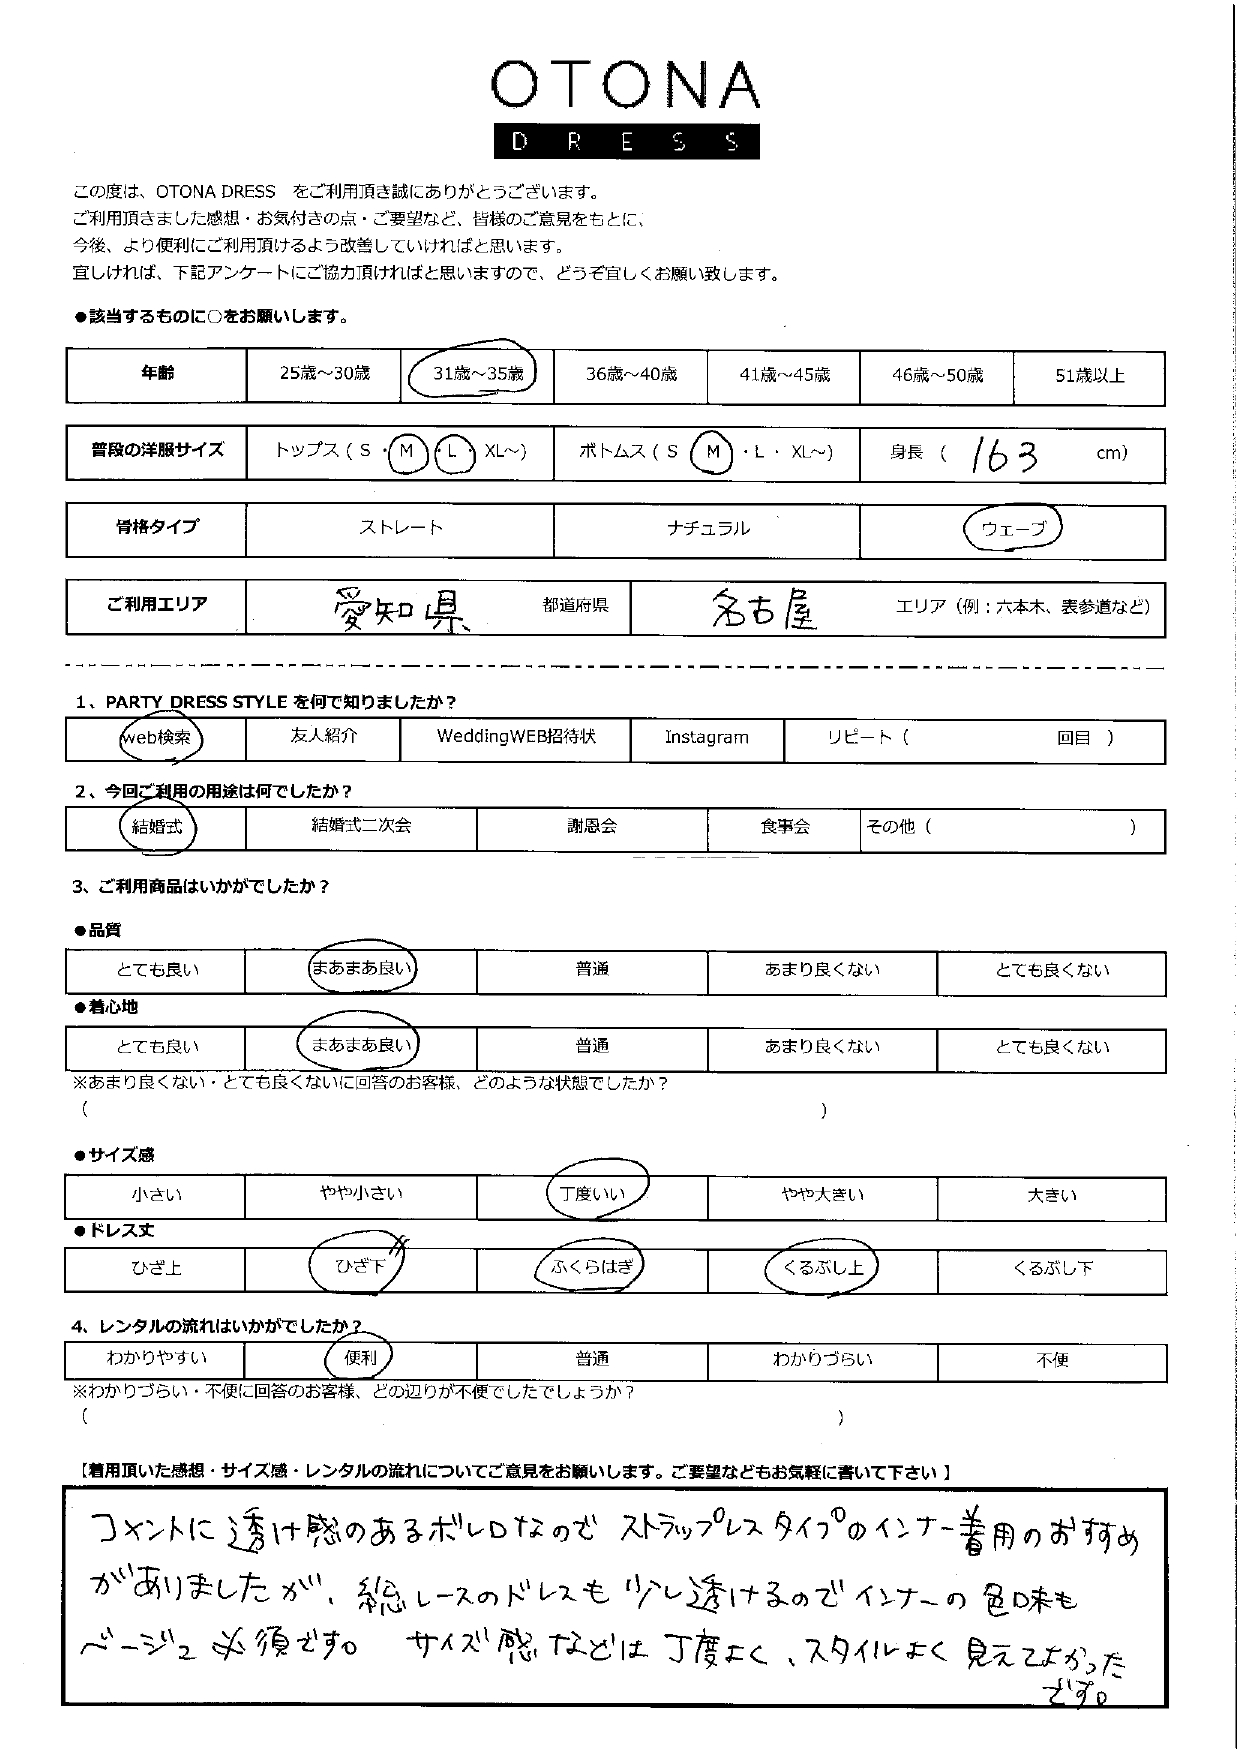 OTONA
DRESS
この度は、OTONA DRESS　をご利用頂き誠にありがとうございます。
ご利用頂きました感想・お気付きの点・ご要望など、皆様のご意見をもとに、
今後、より便利にご利用頂けるよう改善していければと思います。
宜しければ、下記アンケートにご協力頂ければと思いますので、どうぞ宜しくお願い致します。
●該当するものに○をお願いします。
年齢 25歳～30歳 31歳～35歳 36歳～40歳 41歳～45歳 46歳～50歳 51歳以上
普段の洋服サイズ トップス（ S ・ M ・ L ・ XL～） ボトムス（ S M ・ L ・ XL～） 身長 （ 163 cm）
骨格タイプ ストレート ナチュラル ウェーブ
ご利用エリア 愛知県 都道府県 名古屋 エリア（例：六本木、表参道など）
1、PARTY DRESS STYLE を何で知りましたか？
web検索 友人紹介 WeddingWEB招待状 Instagram リピート（ 回目 ）
2、今回ご利用の用途は何でしたか？
結婚式 結婚式二次会 謝恩会 食事会 その他（ ）
3、ご利用商品はいかがでしたか？
●品質
とても良い まあまあ良い 普通 あまり良くない とても良くない
●着心地
とても良い まあまあ良い 普通 あまり良くない とても良くない
※あまり良くない・とても良くないに回答のお客様、どのような状態でしたか？
（ ）
●サイズ感
小さい やや小さい 丁度いい やや大きい 大きい
●ドレス丈
ひざ上 ひざ下 ふくらはぎ くるぶし上 くるぶし下
4、レンタルの流れはいかがでしたか？
わかりやすい 便利 普通 わかりづらい 不便
※わかりづらい・不便に回答のお客様、どの辺りが不便でしたでしょうか？
（ ）
【着用頂いた感想・サイズ感・レンタルの流れについてご意見をお願いします。ご要望などもお気軽に書いて下さい 】
コメントに透け感のあるボレロなので ストラップレスタイプのインナー着用のおすすめ
がありましたが、総レースのドレスも少し透けるのでインナーの色味も
ベージュ必須です。 サイズ感などは丁度よく、スタイルよく見えてよかった
です。